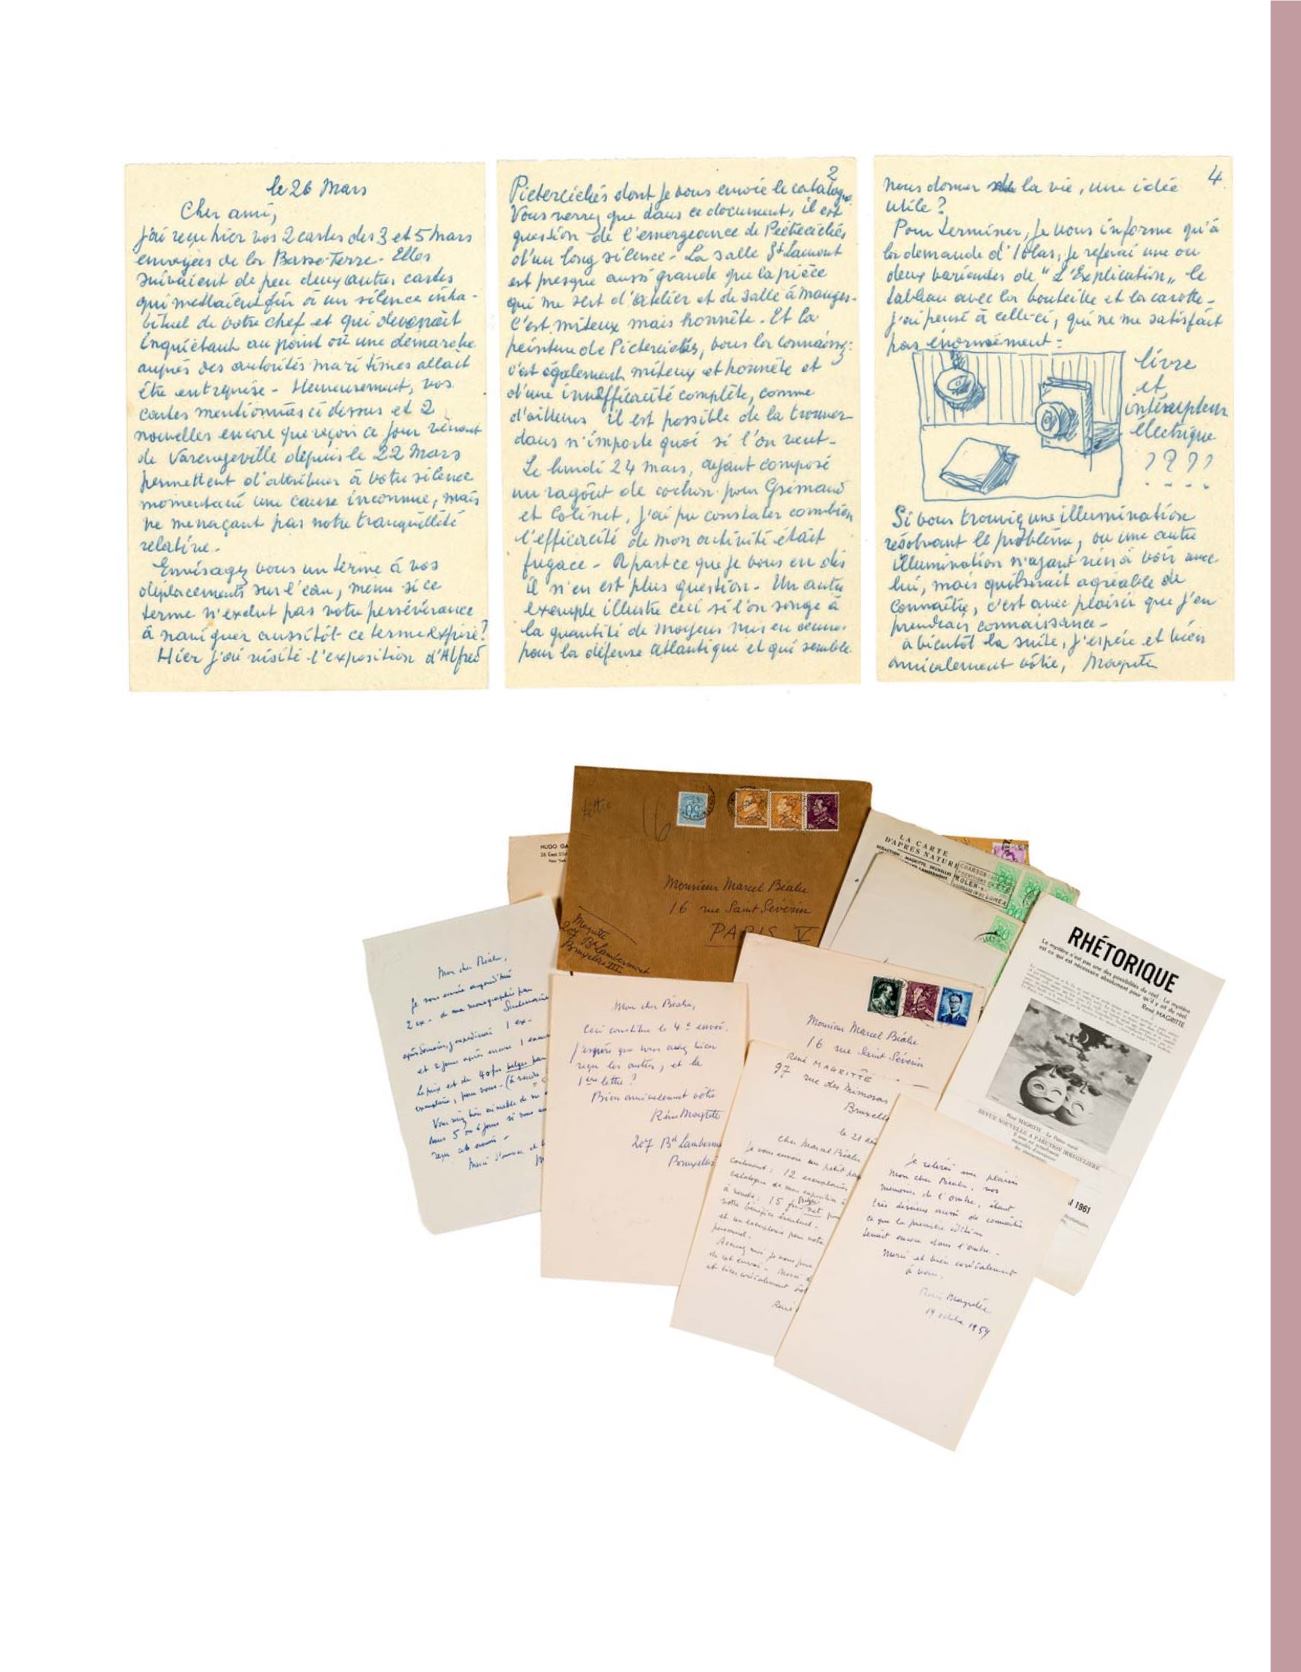 le 26 Mars
Cher ami,
j'ai reçu hier vos 2 cartes des 3 et 5 Mars
envoyées de la Basse-Terre - Elles
suivaient de peu deux autres cartes
qui mettaient fin à un silence inha-
bituel de votre chef et qui devenait
inquiétant au point où une démarche
auprès des autorités maritimes allait
être entreprise - Heureusement, vos
cartes mentionnées ci dessus et 2
nouvelles encore que reçois ce jour venant
de Varengeville depuis le 22 Mars
permettent d'attribuer à votre silence
momentané une cause inconnue, mais
ne menaçant pas notre tranquillité
relative -
Envisagez vous un terme à vos
déplacements sur l'eau, même si ce
terme n'exclut pas votre persévérance
à naviguer aussitôt ce terme expiré ?
Hier j'ai visité l'exposition d'Alfred
2
dont je vous envoie le catalogue.
Vous verrez que dans ce document, il est
question de l'émergeance de
d'un long silence - La salle St Laurent
est presque aussi grande que la pièce
qui me sert d'atelier et de salle à manger -
C'est miteux mais honnête - Et la
peinture de vous la connaissez :
c'est également miteux et honnête et
d'une inefficacité complète, comme
d'ailleurs il est possible de la trouver
dans n'importe quoi si l'on veut -
Le lundi 24 mars, ayant composé
un ragoût de cochon pour Grimaud
et Colinet, j'ai pu constater combien
l'efficacité de mon activité était
fugace - A part ce que je vous en dis
il n'en est plus question - Un autre
exemple illustre ceci si l'on songe à
la quantité de moyens mis en œuvre
pour la défense atlantique et qui semble
4
nous donner de la vie, une idée
utile ?
Pour terminer, je vous informe qu'à
la demande d'Iolas, je referai une ou
deux variantes de "L'Explication" le
tableau avec la bouteille et la carotte -
j'ai pensé à celle-ci, qui ne me satisfait
pas énormément :
livre
et
intérrupteur
électrique
? ? ? ?
Si vous trouviez une illumination
résolvant le problème, ou une autre
illumination n'ayant rien à voir avec
lui, mais qu'il serait agréable de
connaître, c'est avec plaisir que j'en
prendrais connaissance -
à bientôt la suite, j'espère et bien
amicalement vôtre, Magritte
16
Monsieur Marcel Béalu
16 rue Saint Séverin
PARIS V
Magritte
207 Bd Lambermont
Bruxelles III
HUGO GA
New York
LA CARTE
D'APRÈS NATURE
Mon cher Béalu,
Je vous envoie aujourd'hui
2 ex - de ma monographie par
Mon cher Béalu,
Ceci constitue le 4e envoi.
J'espère que vous avez bien
reçu les autres, et la
1ère lettre ?
Bien amicalement vôtre
René Magritte
207 Bd Lambermo
Bruxelles
Monsieur Marcel Béalu
16 rue Saint Séverin
René MAGRITTE
97 rue des Mimosas
Bruxelle
Cher Marcel Béalu
Je vous envoie un petit pa
contenant : 12 exemplaires
catalogue de mon exposition à
et un exemplaire pour votre
personnel.
René
RHÉTORIQUE
Le mystère n'est pas une des possibilités du réel. Le mystère
est ce qui est nécessaire absolument pour qu'il y ait du réel.
René MAGRITTE
REVUE NOUVELLE A PARUTION IRREGULIERE
AI 1961
Je relirai avec plaisir
Mon cher Béalu, vos
mémoires de l'ombre, étant
très désireux aussi de connaître
ce que la première édition
tenait encore dans l'ombre -
Merci et bien cordialement
à vous,
René Magritte
19 octobre 1959